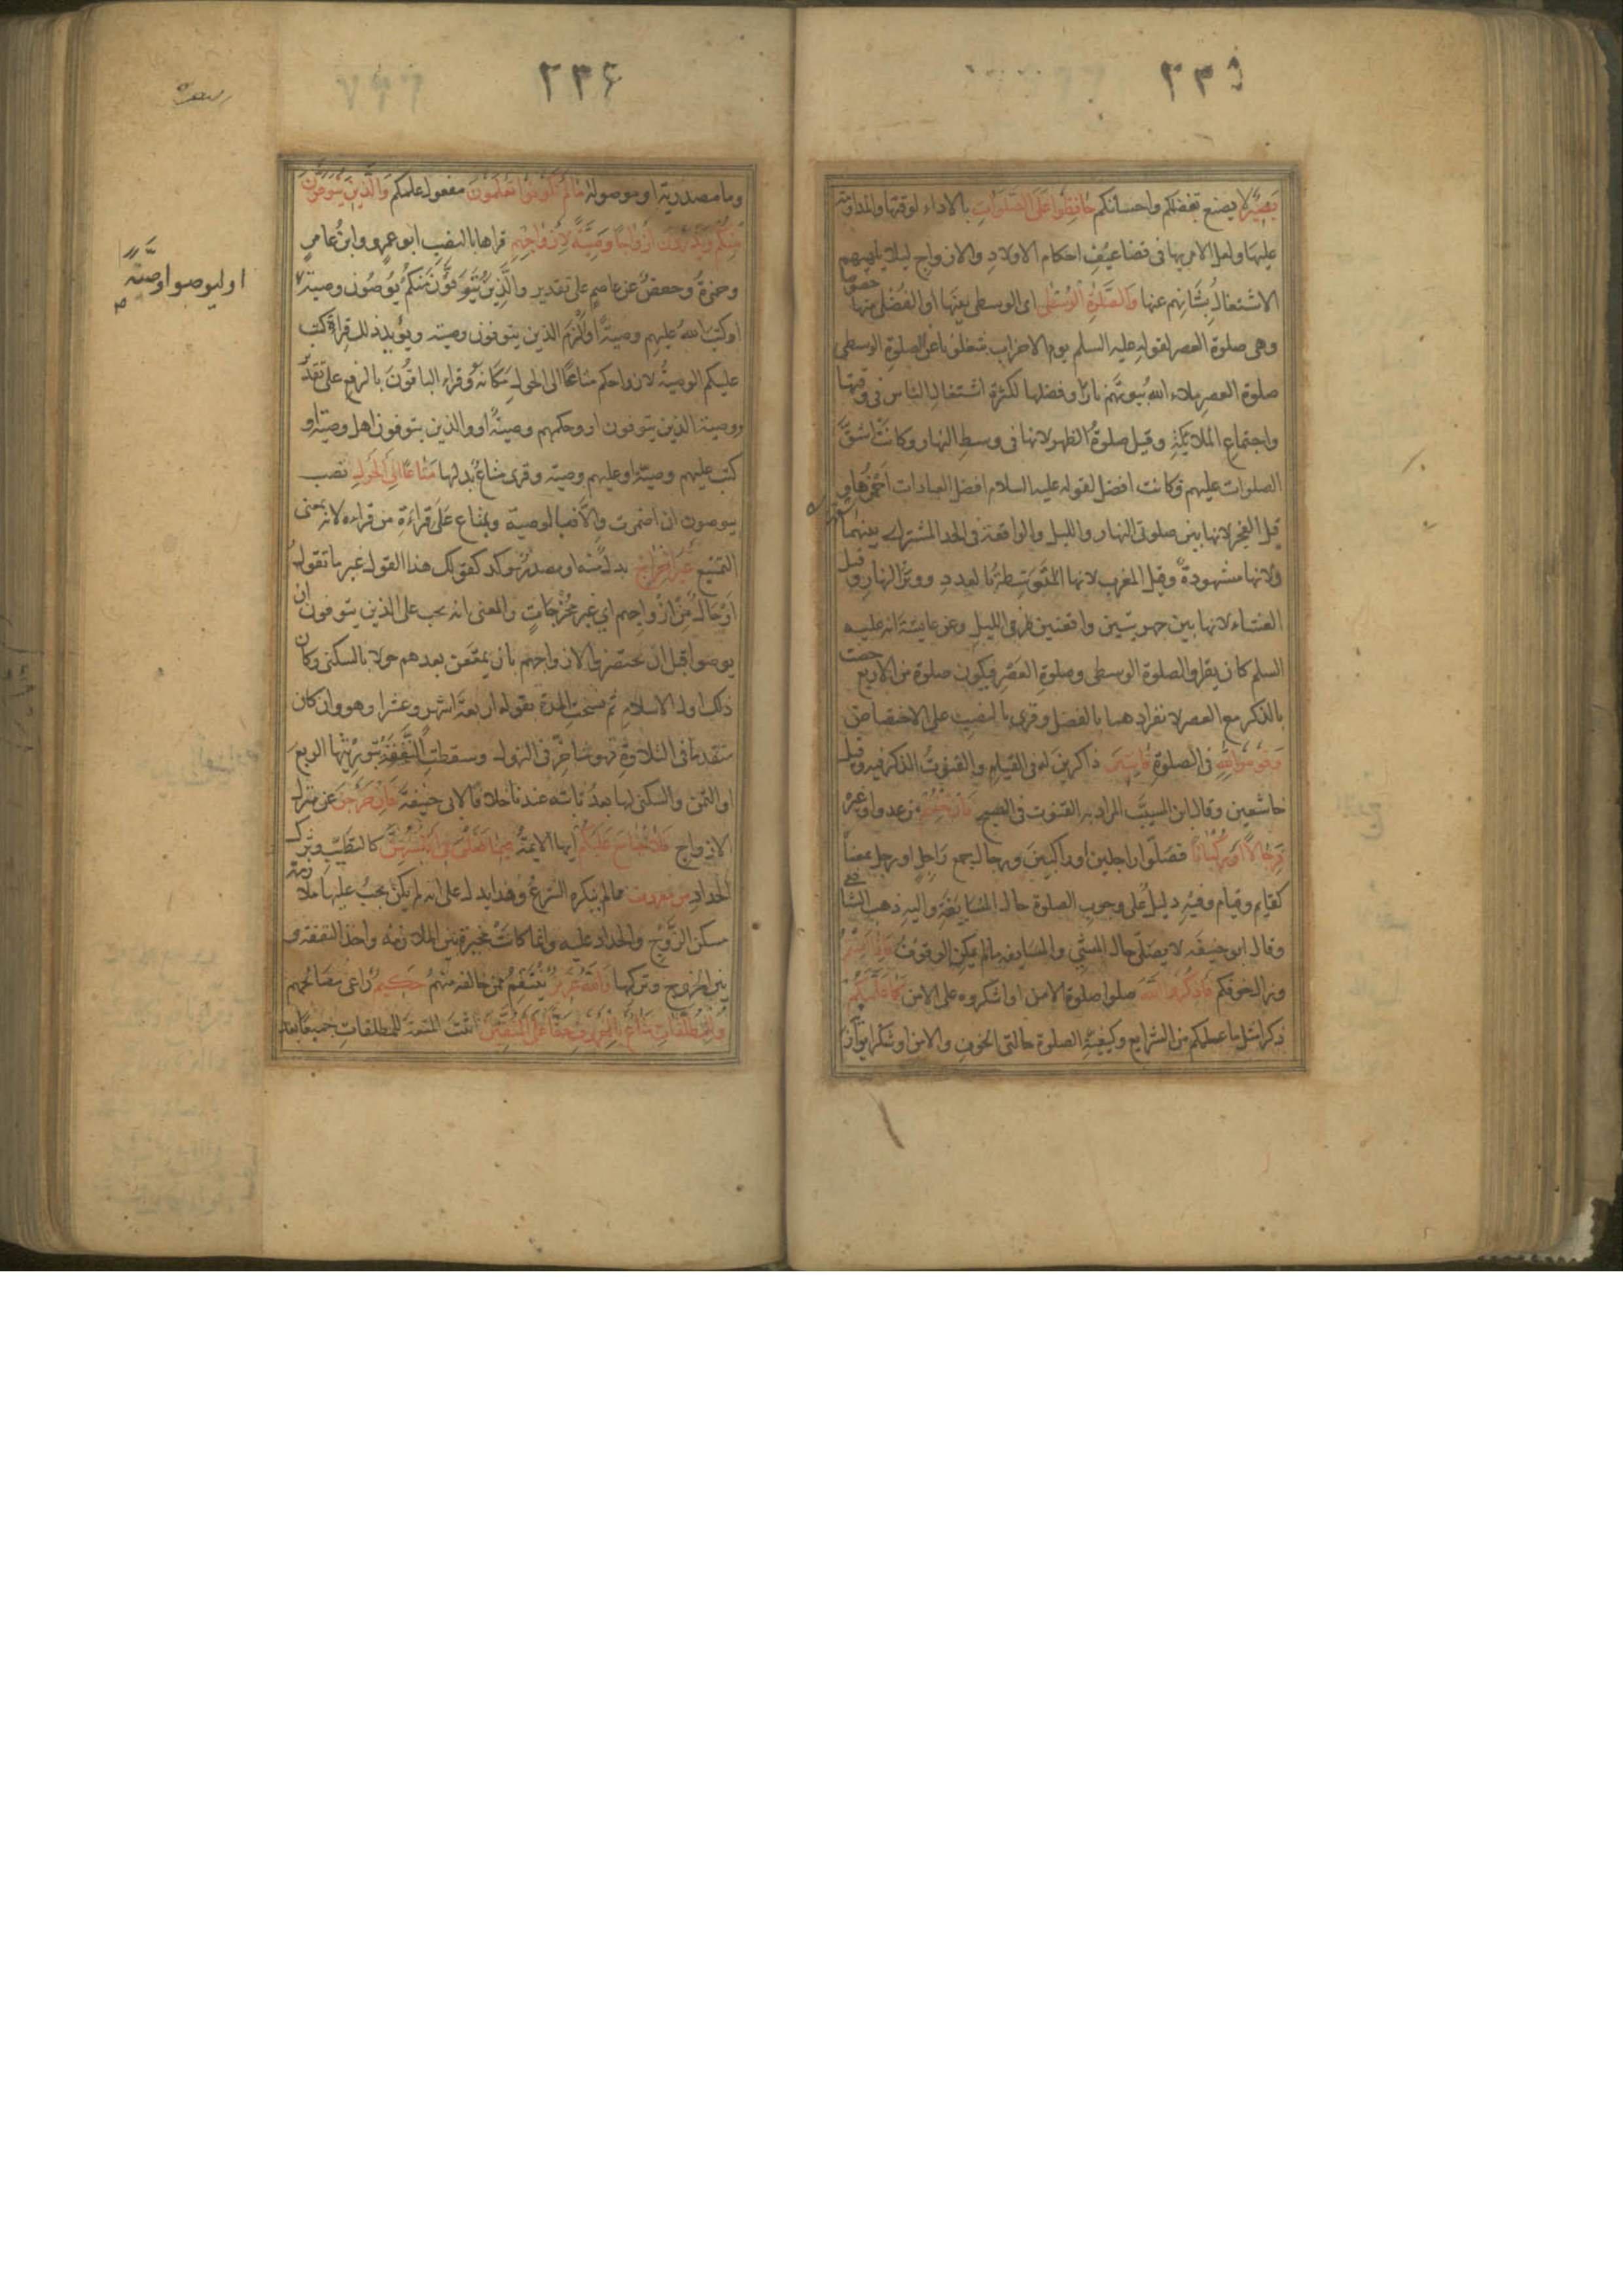 ٢٣٥
بَصِيرٌ لا يضيع تفضلكم واحسانكم حَافِظُوا عَلَى الصَّلَوَاتِ بالاداء لوقتها والمداومة
عليها ولعل الامر بها فى تضاعيف احكام الاولاد والازواج ليلا يلهيهم
الاشتغال بشانهم عنها وَالصَّلٰوةِ الْوُسْطٰى اى الوسطى بينها او الفضلى منها خصوصا
وهى صلوة العصر لقوله عليه السلم يوم الاحزاب شغلونا عن الصلوة الوسطى
صلوة العصر ملاء الله بيوتهم نارا وفضلها لكثرة اشتغال الناس فى وقتها
واجتماع الملائكة وقيل صلوة الظهر لانها فى وسط النهار وكانت اشق
الصلوات عليهم وكانت افضل لقوله عليه السلام افضل العبادات احمزها و
قيل الفجر لانها بين صلوتى النهار والليل والواقعة فى الحد المشترك بينهما
ولانها مشهودة وقيل المغرب لانها المتوسطة بالعدد ووتر النهار وقيل
العشاء لانها بين جهريتين واقعتين طرفى الليل وعن عايشة انه عليه
السلم كان يقرا والصلوة الوسطى وصلوة العصر فيكون صلوة من الاربع خصت
بالذكر مع العصر لانفرادهما بالفضل وقرى بالنصب على الاختصاص
وَقُومُوا لِلّٰهِ فى الصلوة قَانِتِينَ ذاكرين له فى القيام والقنوت الذكر فيه وقيل
خاشعين وقال ابن المسيب المراد به القنوت فى الصبح فَاِنْ خِفْتُمْ من عدو او غيره
فَرِجَالًا اَوْ رُكْبَانًا فصلوا راجلين او راكبين ورجال جمع راجل او رجل بمعناه
كقايم وقيام وفيه دليل على وجوب الصلوة حال المسايفة واليه ذهب الشافعي
وقال ابو حنيفه لا يصلى حال المشي والمسايفه مالم يمكن الوقوف فَاِذَا اَمِنْتُمْ
وزال خوفكم فَاذْكُرُوا اللّٰهَ صلوا صلوة الامن او اشكروه على الامن كَمَا عَلَّمَكُمْ
ذكرا مثل ما علمكم من الشرايع وكيفية الصلوة حالتى الخوف والامن او شكرا يوازيه
٢٣٦
وما مصدرية او موصولة مَا لَمْ تَكُونُوا تَعْلَمُونَ مفعول علمكم وَالَّذِينَ يُتَوَفَّوْنَ
مِنْكُمْ وَيَذَرُونَ اَزْوَاجًا وَصِيَّةً لِاَزْوَاجِهِمْ قراها بالنصب ابو عمرو وابن عامر
وحمزة وحفص عن عاصم على تقدير والذين يتوفون منكم يوصون وصية
او ليوصوا وصيّة
او كتب الله عليهم وصية او الزم الذين يتوفون وصيه ويؤيد ذلك قراة كتب
عليكم الوصية لازواجكم متاعا الى الحول مكانه وقراء الباقون بالرفع على تقدير
ووصية الذين يتوفون او وحكمهم وصية او والذين يتوفون اهل وصية او
كتب عليهم وصية او عليهم وصية وقرى متاع بدلها مَتَاعًا اِلَى الْحَوْلِ نصب
بيوصون ان اضمرت والا فبالوصية وبمتاع على قراءة من قراءه لانه بمعنى
التمتيع غَيْرَ اِخْرَاجٍ بدل منه او مصدر موكد كقولك هذا القول غير ما تقول
او حال من ازواجهم اي غير مخرجات والمعنى انه يجب على الذين يتوفون ان
يوصوا قبل ان يحتضروا لازواجهم بان يمتعن بعدهم حولا بالسكنى وكان
ذلك اول الاسلام ثم نسخت المدة بقوله اربعة اشهر وعشرا وهو وان كان
متقدما فى التلاوة فهو متاخر فى النزول وسقطت النفقة بتوريثها الربع
او الثمن والسكنى لها بعد ثابته عندنا خلافا لابى حنيفة فَاِنْ خَرَجْنَ عن منزل
الازواج فَلَا جُنَاحَ عَلَيْكُمْ ايها الايمة فِيمَا فَعَلْنَ فِي اَنْفُسِهِنَّ كالتطيب وترك
الحداد مِنْ مَعْرُوفٍ مما لم ينكره الشرع وهذا يدل على انه لم يكن يجب عليها ملازمة
مسكن الزوج والحداد عليه وانما كانت مخيرة بين الملازمه واخذ النفقه و
بين الخروج وتركها وَاللّٰهُ عَزِيزٌ ينتقم ممن خالفه منهم حَكِيمٌ راعى مصالحهم
وَلِلْمُطَلَّقَاتِ مَتَاعٌ بِالْمَعْرُوفِ حَقًّا عَلَى الْمُتَّقِينَ اثبت المتعة للمطلقات جميعا بعد